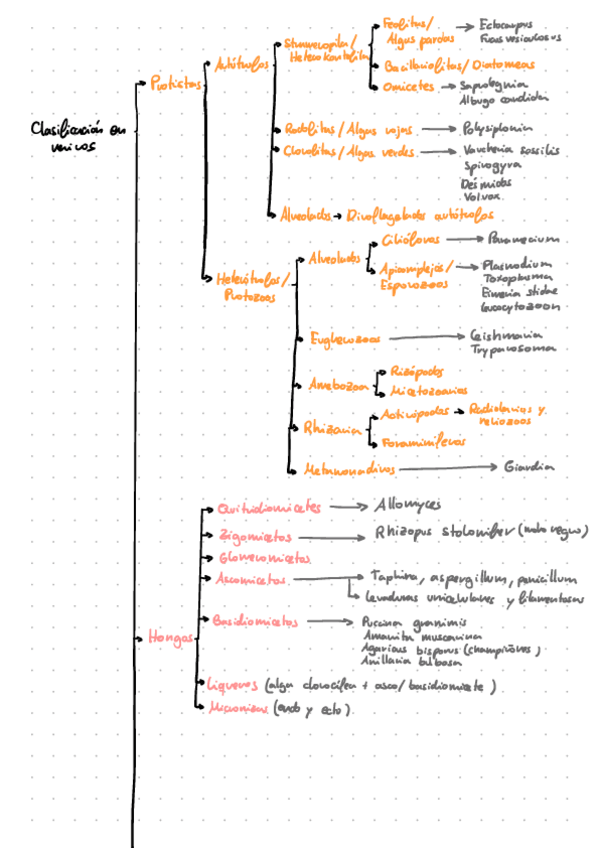 Clasificación en
Protistas
Autótrofos
Stramenopila /
Heterokontofita
Feofitas /
Algas pardas
Ectocarpus
Fucus vesiculosus
Bacillariofitas / Diatomeas
Omicetes
Saprolegnia
Albugo candida
Rodofitas / Algas rojas
Polysiphonia
Clorofitas / Algas verdes
Vaucheria sessilis
Spirogyra
Desmidas
Volvox
Alveolados
Dinoflagelados autótrofos
Heterótrofos /
Protozoos
Alveolados
Cilióforos
Paramecium
Apicomplejos /
Esporozoos
Plasmodium
Toxoplasma
Eimeria stidae
Leucocytozoon
Euglenozoos
Leishmania
Trypanosoma
Amebozoa
Rizópodos
Micetozoarios
Rhizaria
Actinópodos
Radiolarios y
heliozoos
Foraminíferos
Metamonadinos
Giardia
Hongos
Quitridiomicetes
Allomyces
Zigomicetos
Rhizopus stolonifer (moho negro)
Glomeromicetos
Ascomicetos
Taphrina, aspergillum, penicillum
Levaduras unicelulares y filamentosas
Basidiomicetos
Puccinia graminis
Amanita muscarina
Agaricus bisporus (champiñones)
Armillaria bulbosa
Líquenes (alga clorocífea + asco/basidiomicete)
Micorrizas (endo y ecto)